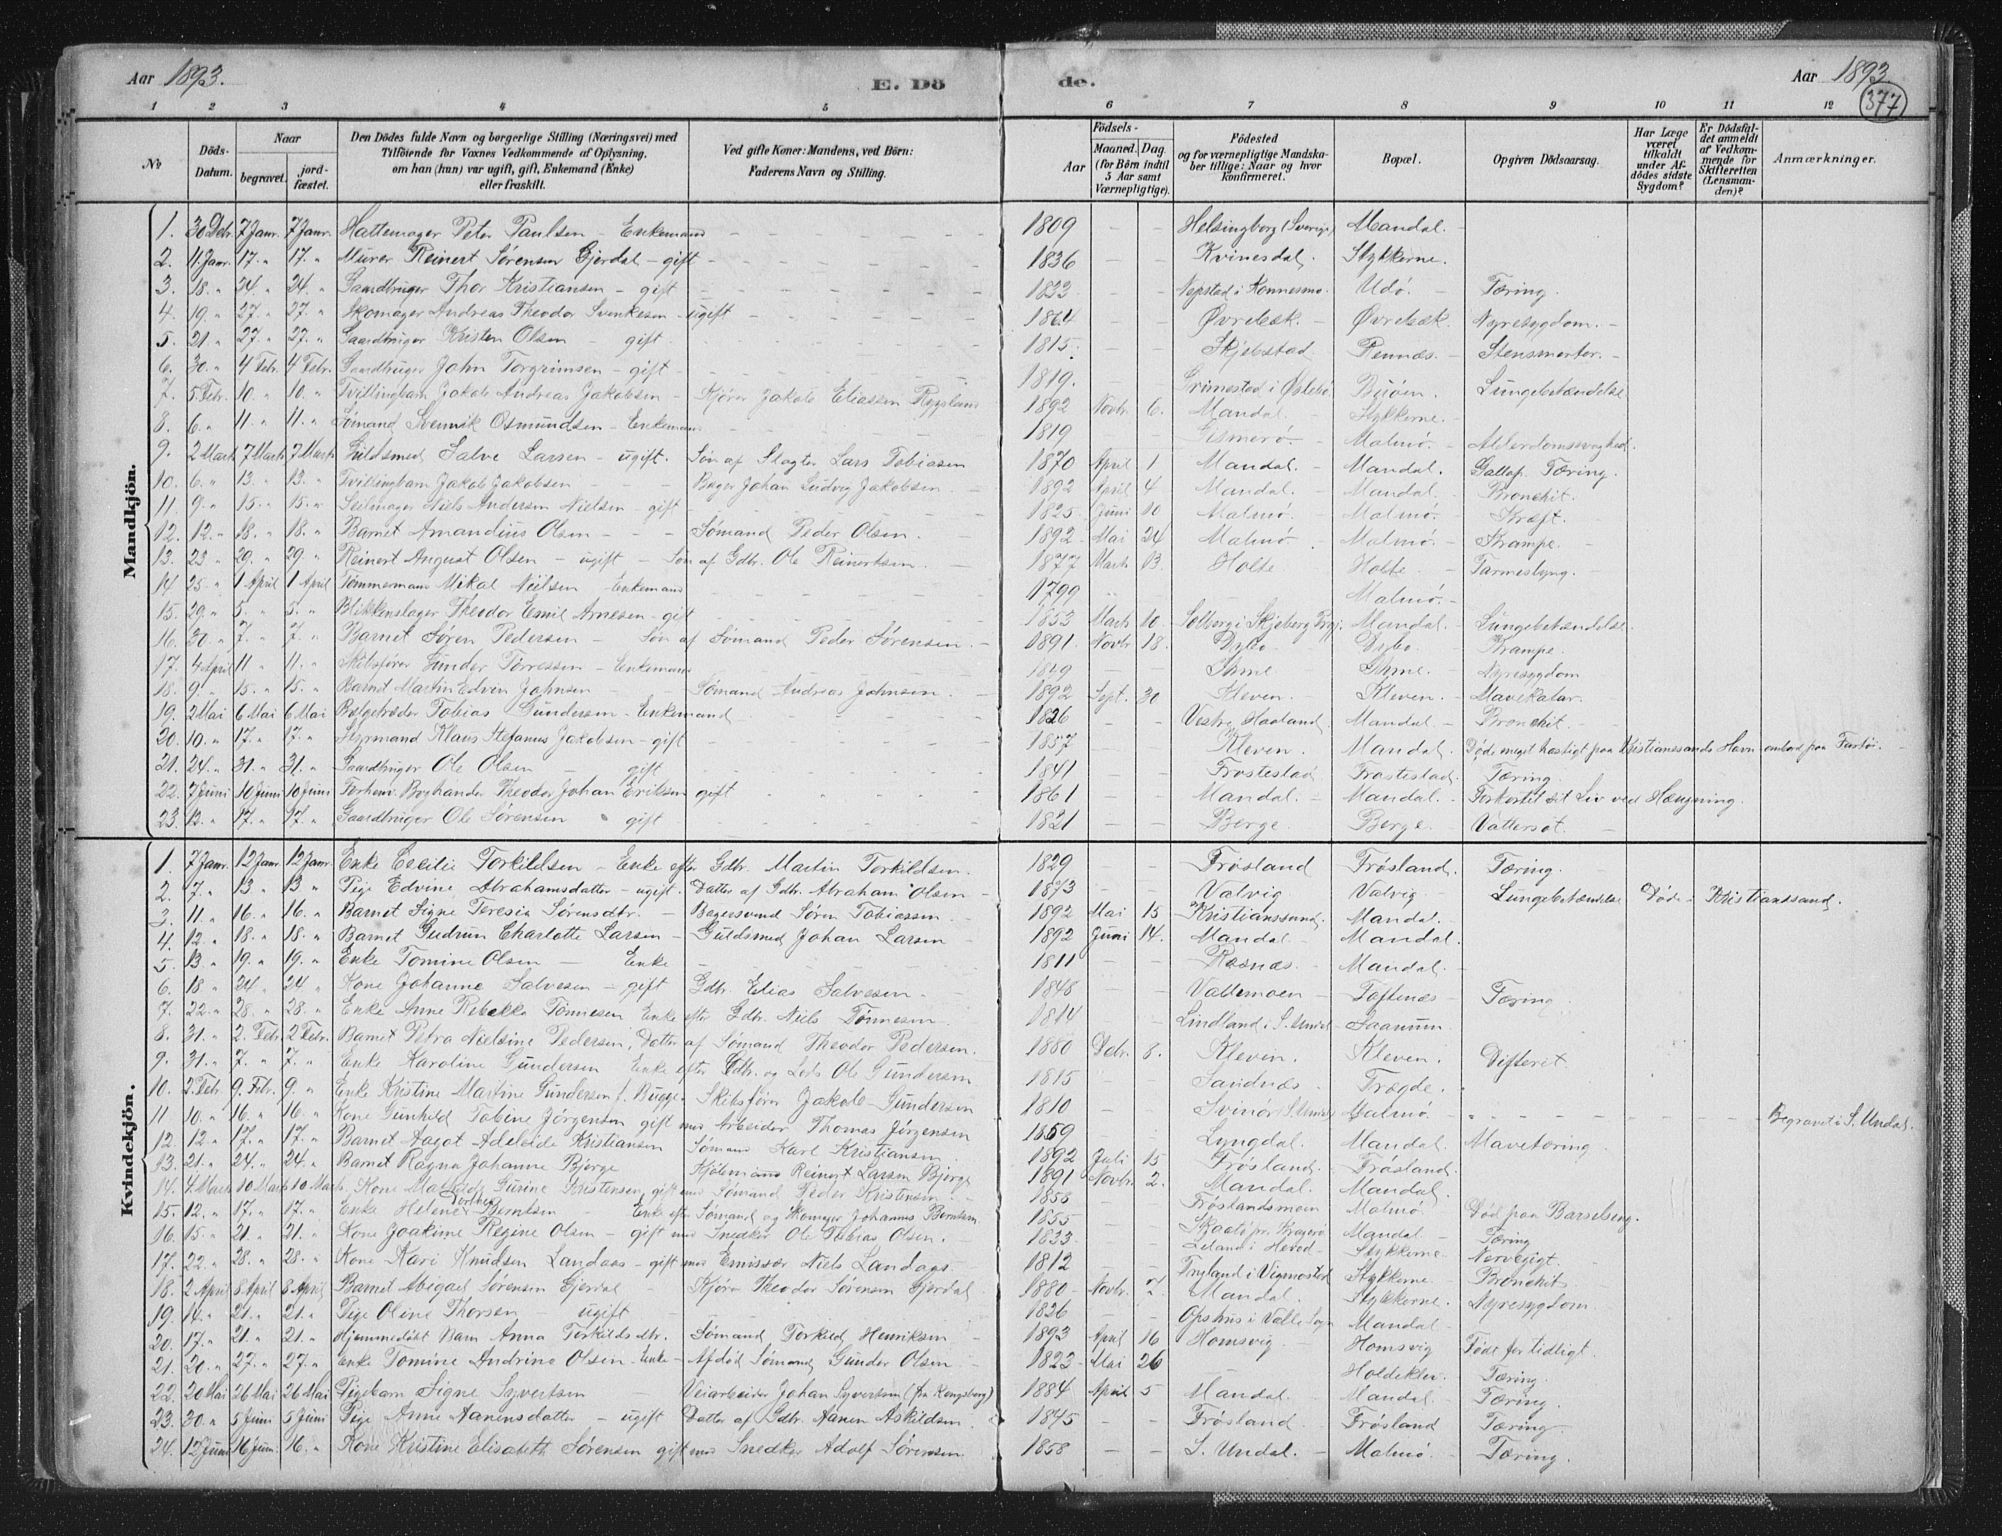 Aar 1893. E. Dö de. Aar 1893.
377
1 2 3 4 5 6 7 8 9 10 11 12
No
Döds-Datum.
Naar
begravet. jord-fæstet.
Den Dödes fulde Navn og borgerlige Stilling (Næringsvei) med Tilföiende for Voxnes Vedkommende af Oplysning, om han (hun) var ugift, gift, Enkemand (Enke) eller fraskilt.
Ved gifte Koner: Mandens, ved Börn: Faderens Navn og Stilling.
Födsels-
Aar Maaned. Dag.
(for Börn indtil 5 Aar samt Værnepligtige).
Födested og for værnepligtige Mandska-ber tillige: Naar og hvor konfirmeret.
Bopæl.
Opgiven Dödsaarsag.
Har Læge været tilkaldt under Af-dödes sidste Sygdom?
Er Dödsfal-det anmeldt af Vedkom-mende for Skifteretten (Lensman-den)?
Anmærkninger.
Mandkjön.
1. 30 Debr. 7 Janr. 7 Janr. Hattemager Peter Paulsen - Enkemand 1809 - - Helsingborg (Sverige) Mandal. -
2. 11 Janr. 17. " 17. " Murer Reinert Sørensen Gjerdal - gift - 1836 - - Kvinesdal. Stykkerne.
3. 18. " 24 " 24. " Gaardbruger Thor Kristiansen - gift - 1833 - - Udö. - Tæring.
4. 19. " 27. " 27. " Skomager Andreas Theodor Svenkesen - ugift - 1864 - - Øvrebæk. - Øvrebæk. Nyresygdom. -
5. 21. " 27. " 27. " Gaardbruger Kristen Olsen - gift. 1815. - - Skjebstad Rennæs. - Stensmerter. -
6. 30. " 4 Febr. 4 Febr. Gaardbruger John Torgrimsen - gift - 1819. - - Grimestad i Øslebø. Byøen. Lungebetændelse
7. 5 Febr. 10. " 10. " Tvillingbarn Jakob Andreas Jakobsen - Kjører Jakob Eliassen 1892 Novbr. 6. Mandal. Stykkerne. -
8. 6. " 11. " 11. " Sømand Svennik Osmundsen - Enkemand 1819 Gismerø. - Malmø. - Alderdomssvaghed.
9. 2 Marts 7 Marts 7 Marts Guldsmed Salve Larsen - ugift. Søn af Slagter Lars Tobiasen 1870 April 1 Mandal. - Mandal. Gallop. Tæring.
10. 6. " 13. " 13. " Tvillingbarn Jakob Jakobsen - Bager Johan Ludvig Jakobsen. 1892 April 4 Mandal. Mandal. Bronchit.
11. 9. " 15. " 15. " Seilmager Niels Andersen Nielsen - gift 1825. Juni 10 Malmø. - Malmø. Kræft. -
12. 12. " 18. " 18. " Barnet Amandius Olsen - Sømand Peder Olsen. 1892. Mai 24 Malmø. Malmø. Krampe.
13. 23 " 29. " 29. " Reinert August Olsen - ugift - Søn af Gdbr. Ole Reinertsen. 1877 Marts 13. Holte Holte - Tarmeslyng.
14 25. " 1 April 1 April Tømmermand Mikal Nielsen - Enkemand 1799 - - Malmø. -
15. 29. " 5. " 5. " Blikkenslager Theodor Emil Arnesen - gift 1853 Marts 10. Solberg i Skjeberg Mandal. Lungebetændelse.
16. 30. " 7. " 7. " Barnet Søren Pedersen - Søn af Sømand Peder Sørensen. 1891. Novbr. 18. Dybo Dybo. Krampe.
17. 4 April 11 " 11. " Skibsfører Gunder Tørressen - Enkemand Ihme - Ihme. - Nyresygdom
18. 9. " 15. " 15. " Barnet Martin Edvin Johnsen - Sømand Andreas Johnsen. 1892 Sept. 30 Kleven. Kleven. Mavekatar.
19. 2 Mai 6 Mai 6 Mai Bælgetræder Tobias Gundersen - Enkemand 1826 - - Vestre Haaland. Mandal - Bronchit. -
20. 10. " 17. " 17. " Styrmand Klaus Stefanus Jakobsen - gift 1857 - - Kleven. Mandal. Døde meget hastigt paa Kristianssands Havn ombord paa Fartøi.
21. 24. " 31. " 31. " Gaardbruger Ole Olsen - gift 1841 - - Frostestad. Frostestad. Tæring. -
22. 7 Juni 10 Juni 10 Juni Forhenv. Boghandler Theodor Johan Eriksen gift 1861 - - Mandal. - Mandal. - Forkortet sit Liv ved Hængning.
23. 12. " 17. " 17. " Gaardbruger Ole Sørensen gift 1821 - - Berge. Berge. - Vattersot.
Kvindekjön.
1. 7 Janr. 12 Janr. 12 Janr. Enke Cecilie Torkildsen - Enke efter Gdbr. Martin Torkildsen. 1829 Frøsland Frøsland. Tæring. -
2. 7. " 13 " 13 " Pige Edvine Abrahamsdatter - ugift. Datter af Gdbr. Abraham Olsen - 1873 - - Valvig Valvig - Lungebetændelse Døde i Kristianssand.
3. 11 " 16. " 16. " Barnet Signe Teresia Sørensdtr. - Bagersvend Søren Tobiassen. 1892 Mai 15 Kristianssand. Mandal.
4. 12 " 18. " 18. " Barnet Gudrun Charlotte Larsen - Guldsmed Johan Larsen - 1892 Juni 14. Mandal. - Mandal.
5. 13 " 19. " 19. " Enke Tomine Olsen - Enke 1811 - - Rosnæs. - Mandal. -
6. 18 " 24 " 24 " Kone Johanne Salvesen - gift Gdbr. Elias Salvesen - 1848 - - Vallemoen Toftenæs - Tæring
7. 22. " 28. " 28. " Enke Anne Rebekka Tønnesen Enke efter Gdbr. Niels Tønnesen. 1814 - - Lindland i S. Undal Saanum.
8. 31 " 2. Febr. 2 Febr. Barnet Petra Nielsine Pedersen, Datter af Sømand Theodor Pedersen. 1880 Debr. 8. Kleven. Kleven. Difterit.
9. 31. " 7. " 7. " Enke Karoline Gundersen Enke efter Gdbr. og Lods Ole Gundersen 1815 - - Sandnæs - Trægde. -
10. 2 Febr. 9 Febr. 9 " Enke Kristine Martine Gundersen f. Bugge. Skibsfører Jakob Gundersen 1810 - - Svinør S. Undal Malmø Begravet i S. Undal.
11 10. " 16. " 16. " Kone Gunhild Tobine Jørgensen gift med Arbeider Thomas Jørgensen 1859 - - Lyngdal. Mandal. Mavetæring.
12. 12 " 17. " 17. " Barnet Aagot Adeleide Kristiansen Sømand Karl Kristiansen. 1892 Juli 15. Frøsland. Frøsland.
13. 21. " 24. " 24. " Barnet Ragna Johanne Bjerge Reinert Larsen Bjerge 1891 Novbr. 2. Mandal. Mandal.
14. 4 Marts 10 Marts 10 Marts Kone Gurine Kristensen gift med Sømand Peder Kristensen. Frøslandsmoen Malmø. Død paa Barselseng.
15. 12. " 17. " 17. " Enke Helene Berntsen - Enke efter Sømand og Skomager Johannes Berntsen. Mandal
16. 15. " 21. " 21. " Kone Joakime Regine Olsen - gift med Snedker Ole Tobias Olsen. 1833. Tæring
17. 22. " 28. " 28. " Kone Kari Knudsen Landaas - gift med Emissær Niels Landaas. 1812 Stykkerne. Nervegigt.
18. 2 April 8 April 8 April Barnet Abigael Sørensen Gjerdal - Kjører Theodor Sørensen Gjerdal. 1880 Novbr. 7. Mandal. Stykkerne - Bronchit
19. 14. " 21. " 21. " Pige Oline Thorsen - ugift - 1826 Stykkerne. Nyresygdom.
20. 17. " 21. " 21. " Hjemmedøbt Barn Anna Torkildsdtr. - Sømand Torkild Henriksen - 1893 April 16 Homsvig Homsvig Født for tidligt.
21. 20. " 27. " 27. " Enke Tomine Andrine Olsen - Enke - Afdød Sømand Gunder Olsen 1823 - Mai 26 Tæring.
22. 20 Mai 26 Mai 26 Mai Pigebarn Signe Syvertsen Veiarbeider Johan Syvertsen (fra Kongsberg) 1884 April 5 Mandal. Mandal Tæring.
23. 30 " 5 Juni 5 Juni Pige Anne Aanensdatter - ugift Datter af Gdbr. Aanen Askildsen. 1845 - - Frøsland. Frøsland Tæring.
24. 12 Juni 16 Juni 16. " Kone Kristine Elisabeth Sørensen gift med Snedker Adolf Sørensen 1858 - - S. Undal. - Malmø. Tæring.